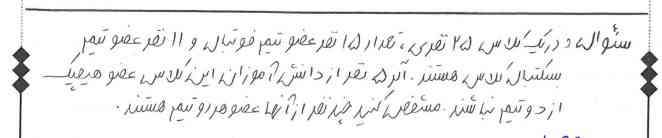 سئوال: در یک کلاس ۲۵ نفری، تعداد ۱۵ نفر عضو تیم فوتبال و ۱۱ نفر عضو تیم
بسکتبال کلاس هستند. اگر ۵ نفر از دانش آموزان این کلاس عضو هیچیک
از دو تیم نباشند. مشخص کنید چند نفر از آنها عضو هر دو تیم هستند.